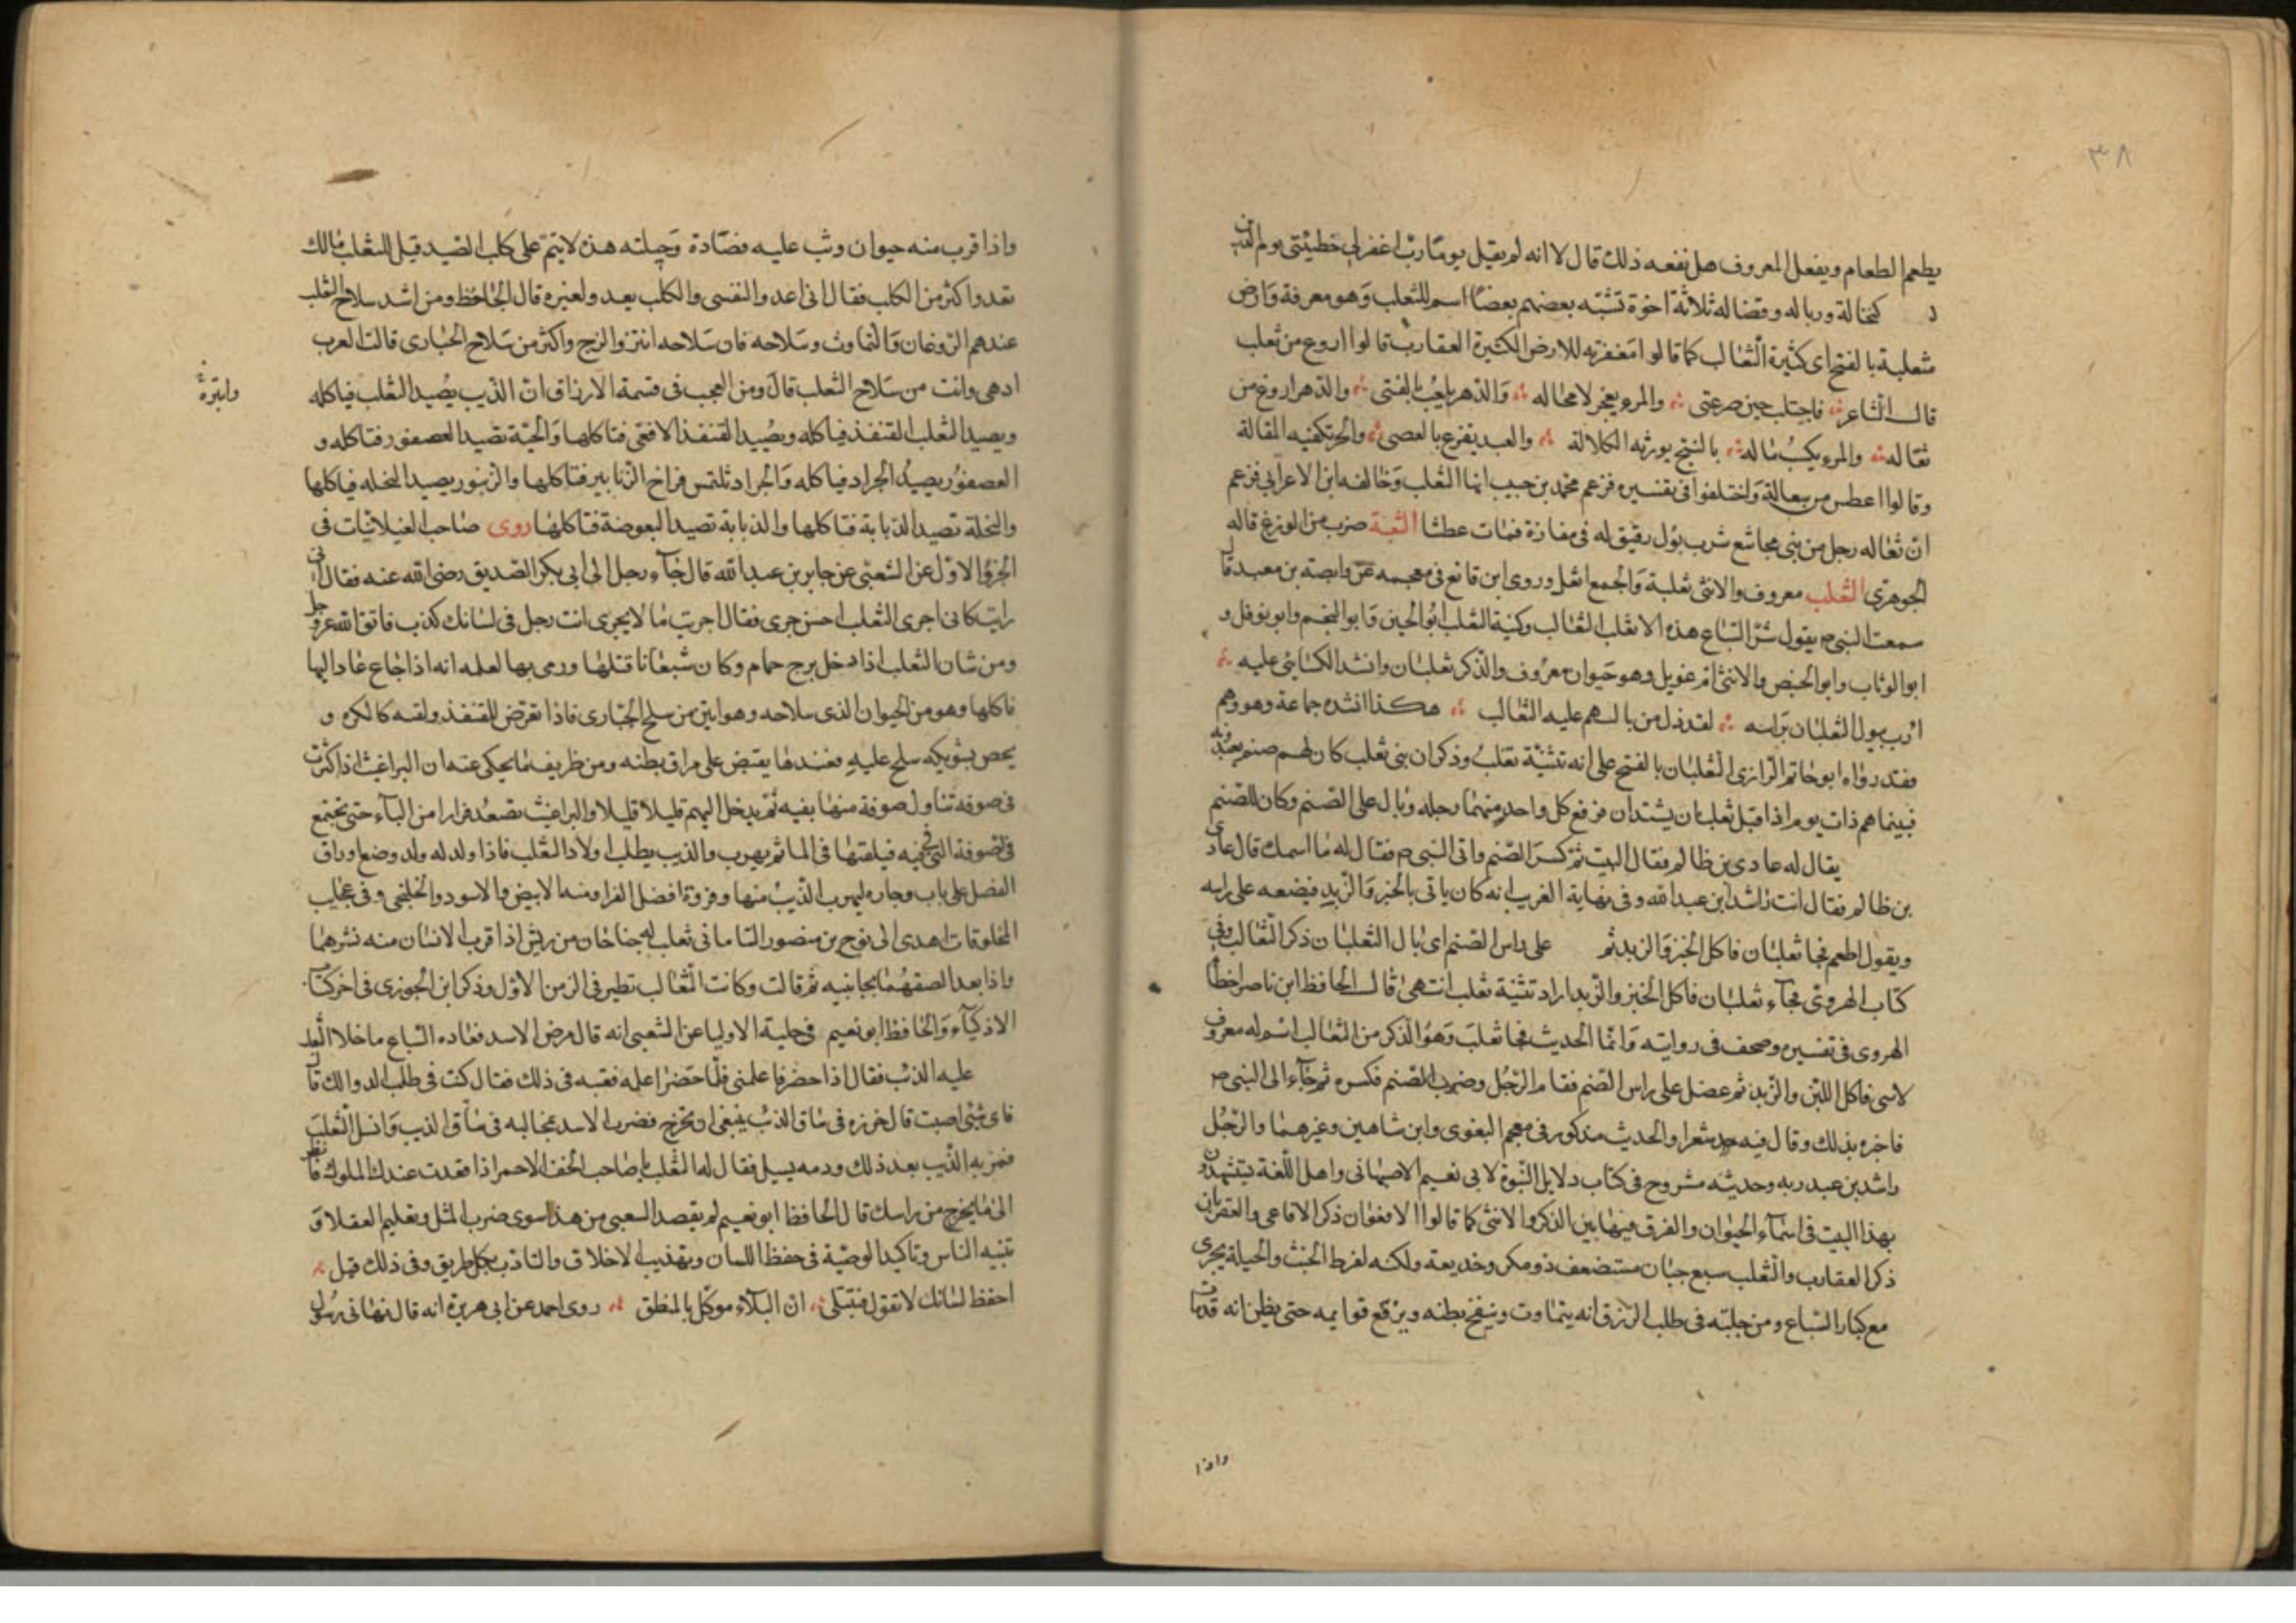 ٣٨
يطعم الطعام ويفعل المعروف هل نفعه ذلك قال لا انه لم يقل يوما رب اغفر لي خطيئتي يوم الدين
كنخالة وزباله وفضاله ثلاثة اخوة تشبه بعضهم بعضا اسم للثعلب وهو معرفة وارض
مثعلبة بالفتح اى كثيرة الثعالب كما قالوا معقربة للارض الكثيرة العقارب قالوا اروغ من ثعلب
قال الشاعر فاحتلب حين صرعتى والمرء يعجز لا محاله والدهر يلعب بالفتى والدهر اروغ من
ثعاله والمرء يكسب ماله بالشح يورثه الكلالة والعبد يقرع بالعصى والحر تكفيه المقالة
وقالوا اعطس من ثعالة واختلفوا فى تفسيره فزعم محمد بن حبيب انها الثعلب وخالفه ابن الاعرابي فزعم
ان ثعاله رجل من بنى مجاشع شرب بول رفيق له فى مفازة فمات عطشا الثعبة ضرب من الوزغ قاله
الجوهرى الثعلب معروف والانثى ثعلبة والجمع اثعل وروى ابن قانع فى معجمه عن وابصة بن معبد قال
سمعت النبى ص يقول شر السباع هذه الاثعل الثعالب وكنية الثعلب ابو الحصين وابو النجم وابو نوفل و
ابو الوثاب وابو الحنبص والانثى ام عويل وهو حيوان معروف والذكر ثعلبان وانشد الكسائى عليه
ارب يبول الثعلبان براسه لقد ذل من بالت عليه الثعالب هكذا انشده جماعة وهو وهم
فقد رواه ابو حاتم الرازى الثعلبان بالفتح على انه تثنية ثعلب وذكر ان بنى ثعلب كان لهم صنم يعبدونه
فبينما هم ذات يوم اذا قبل ثعلبان يشتدان فرفع كل واحد منهما رجله وبال على الصنم وكان للصنم
يقال له عادى بن ظالم فقال البيت ثم كسر الصنم واتى النبى ص فقال له ما اسمك قال عادى
بن ظالم فقال انت راشد بن عبد الله وفى نهاية الغريب انه كان ياتى بالخبز والزبد فيضعه على راسه
ويقول اطعم فجا ثعلبان فاكل الخبز والزبد ثم على راس الصنم اى بال الثعلبان ذكر الثعالب وفى
كتاب الهروى فجاء ثعلبان فاكل الخبز والزبد اراد تثنية ثعلب انتهى قال الحافظ ابن ناصر اخطأ
الهروى فى تفسيره وصحف فى روايته وانما الحديث فجا ثعلب وهو الذكر من الثعالب اسم له معروف
لاسى فاكل اللبن والزبد ثم عضل على راس الصنم فقام الرجل وضرب الصنم فكسره ثم جاء الى النبى ص
فاخبره بذلك وقال فيه شعرا والحديث مذكور فى معجم البغوى وابن شاهين وغيرهما والرجل
راشد بن عبد ربه وحديثه مشروح فى كتاب دلايل النبوة لابى نعيم الاصبهانى واهل اللغة يستشهدون
بهذا البيت فى اسماء الحيوان والفرق فيها بين الذكر والانثى كما قالوا الافعوان ذكر الافاعى والعقربان
ذكر العقارب والثعلب سبع جبان مستضعف ذو مكر وخديعة ولكنه لفرط الخبث والحيلة يجرى
مع كبار السباع ومن حليته فى طلب الرزق انه يتماوت وينفخ بطنه ويرفع قوايمه حتى يظن انه قد مات
واذا
واذا قرب منه حيوان وثب عليه فصاده وحيلته هذه لا يتم على كلب الصيد قيل للثعلب مالك
تعدو اكثر من الكلب فقال انى اعدو لنفسى والكلب يعدو لغيره قال الجاحظ ومن اشد سلاح الثعلب
عندهم الروغان والتماوت وسلاحه فان سلاحه انتن والزج واكثر من سلاح الحبارى قالت العرب
ادهى وانتن من سلاح الثعلب قال ومن العجب فى قسمة الارزاق ان الذيب يصيد الثعلب فياكله
ويصيد الثعلب القنفذ فياكله ويصيد القنفذ الافعى فتاكلها والحية تصيد العصفور فتاكله و
العصفور يصيد الجراد فياكله والجراد تلتمس فراخ الزنابير فتاكلها والزنبور يصيد النحله فياكلها
والنحلة تصيد الذبابة فتاكلها والذبابة تصيد البعوضة فتاكلها روى صاحب الغيلانيات فى
الجزؤ الاول عن الشعبى عن جابر بن عبد الله قال جاء رجل الى ابى بكر الصديق رضى الله عنه فقال انى
رايت كانى اجرى الثعلب احسن جرى فقال اجريت ما لا يجرى انت رجل فى لسانك كذب فاتق الله عز وجل
ومن شان الثعلب اذا دخل برج حمام وكان شبعانا قتلها ورمى بها لعلمه انه اذا جاع عاد اليها
فاكلها وهو من الحيوان الذى سلاحه وهو انتن من سلح الحبارى فاذا تعرض للقنفذ ولقيه كالكره و
يحص بشويكه سلح عليه فعندها يقبض على مراق بطنه ومن ظريف ما يحكى عنه ان البراغيث اذا كثرت
فى صوفه تناول صوفة منها بفيه ثم يدخل اليهم قليلا قليلا والبراغيث تصعد فرارا من الماء حتى تجتمع
فى الصوفة التى فى فيه فيلقيها فى الما ثم يهرب والذيب يطلب اولاد الثعلب فاذا ولد له ولد وضع اوراق
العنصل على باب وجاره ليهرب الذيب منها وفروة افضل الفرا ومنه الابيض والاسود والخلنجى وفى عجايب
المخلوقات اهدى الى نوح بن منصور السامانى ثعلب له جناحان من ريش اذا قرب الانسان منه نشرهما
واذا بعد الصقهما بجانبيه ثم قالت وكانت الثعالب تطير فى الزمن الاول وذكر ابن الجوزى فى اخر كتاب
الاذكياء والحافظ ابو نعيم فى حلية الاوليا عن الشعبى انه قال مرض الاسد فعاده السباع ما خلا الثعلب
عليه الذئب فقال اذا حضر فاعلمنى فلما حضر اعلمه فعتبه فى ذلك فقال كنت فى طلب الدوا لك قال
فاى شئ اصبت قال خرزه فى ساق الذئب ينبغى ان تخرج فضرب الاسد بمخالبه فى ساق الذيب وانسل الثعلب
فمر به الذيب بعد ذلك ودمه يسيل فقال له الثعلب يا صاحب الخف الاحمر اذا قعدت عند الملوك فانظر
الى ما يخرج من راسك قال الحافظ ابو نعيم لم يقصد الشعبى من هذا سوى ضرب المثل وتعليم العقلا و
تنبيه الناس وتاكيد الوصية فى حفظ اللسان وتهذيب الاخلاق والتادب بكل طريق وفى ذلك قيل
احفظ لسانك لا تقول فتبتلى ان البلاء موكل بالمنطق روى احمد عن ابى هريرة انه قال نهانى رسول